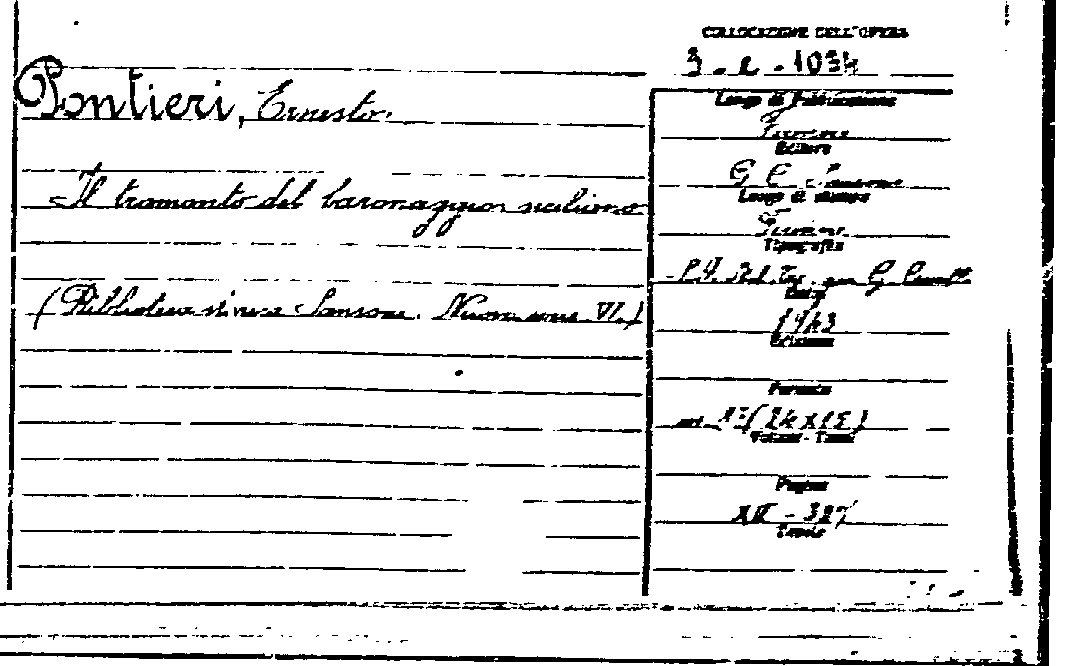 COLLOCAZIONE DELL'OPERA
3 - 2 - 1034
Pontieri, Ernesto.
Luogo di Pubblicazione
Firenze
Editore
Il tramonto del baronaggio siciliano
G C Sansoni
Luogo di stampa
Firenze
Tipografia
G.
Data
(Biblioteca storica Sansoni. Nuova serie VI.)
1943
Edizione
Formato
(24 x 15)
Volumi - Tomi
Pagine
Tavole